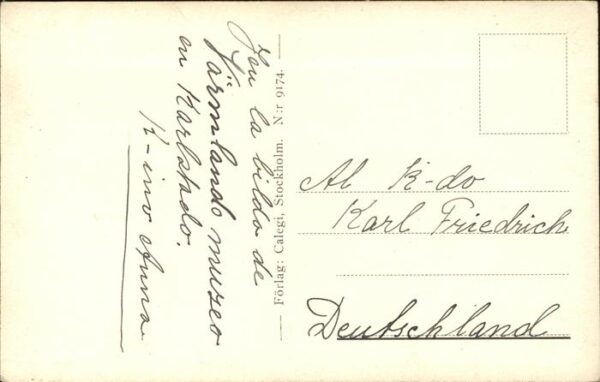 Jen la bildo de
Värmlands museo
en Karlstado.
K-ino Anna
Förlag: Calegi, Stockholm. N:r 9174.
Al K-do
Karl Friedrich
Deutschland